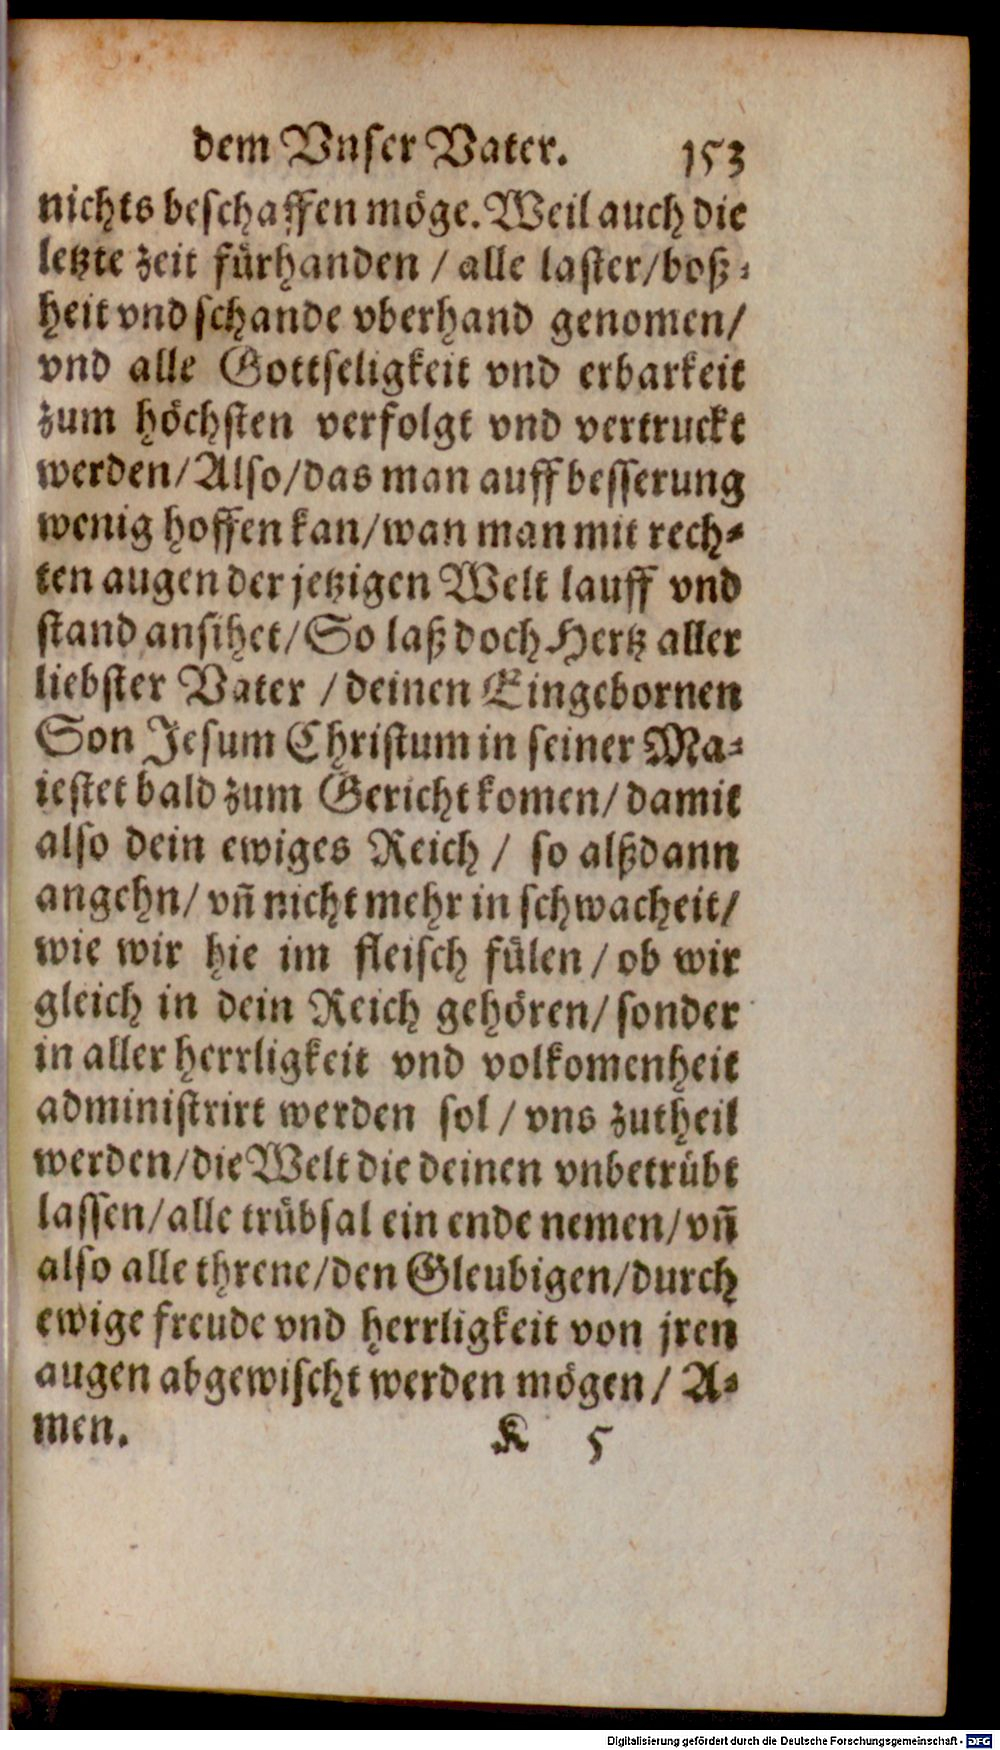 dem Vnser Vater. 153
nichts beschaffen möge. Weil auch die
letzte zeit fürhanden / alle laster/boß-
heit vnd schande vberhand genomen/
vnd alle Gottseligkeit vnd erbarkeit
zum höchsten verfolgt vnd vertruckt
werden/Also/das man auff besserung
wenig hoffen kan/wan man mit rech-
ten augen der jetzigen Welt lauff vnd
stand ansihet/So laß doch Hertz aller
liebster Vater /deinen Eingebornen
Son Jesum Christum in seiner Ma-
iestet bald zum Gericht komen/damit
also dein ewiges Reich / so alßdann
angehn/vñ nicht mehr in schwacheit/
wie wir hie im fleisch fülen/ob wir
gleich in dein Reich gehören/sonder
in aller herrligkeit vnd volkomenheit
administrirt werden sol/vns zutheil
werden/die Welt die deinen vnbetrübt
lassen/alle trübsal ein ende nemen/vñ
also alle threne/den Gleubigen/durch
ewige freude vnd herrligkeit von jren
augen abgewischt werden mögen/ A-
men. K 5
Digitalisierung gefördert durch die Deutsche Forschungsgemeinschaft - DFG